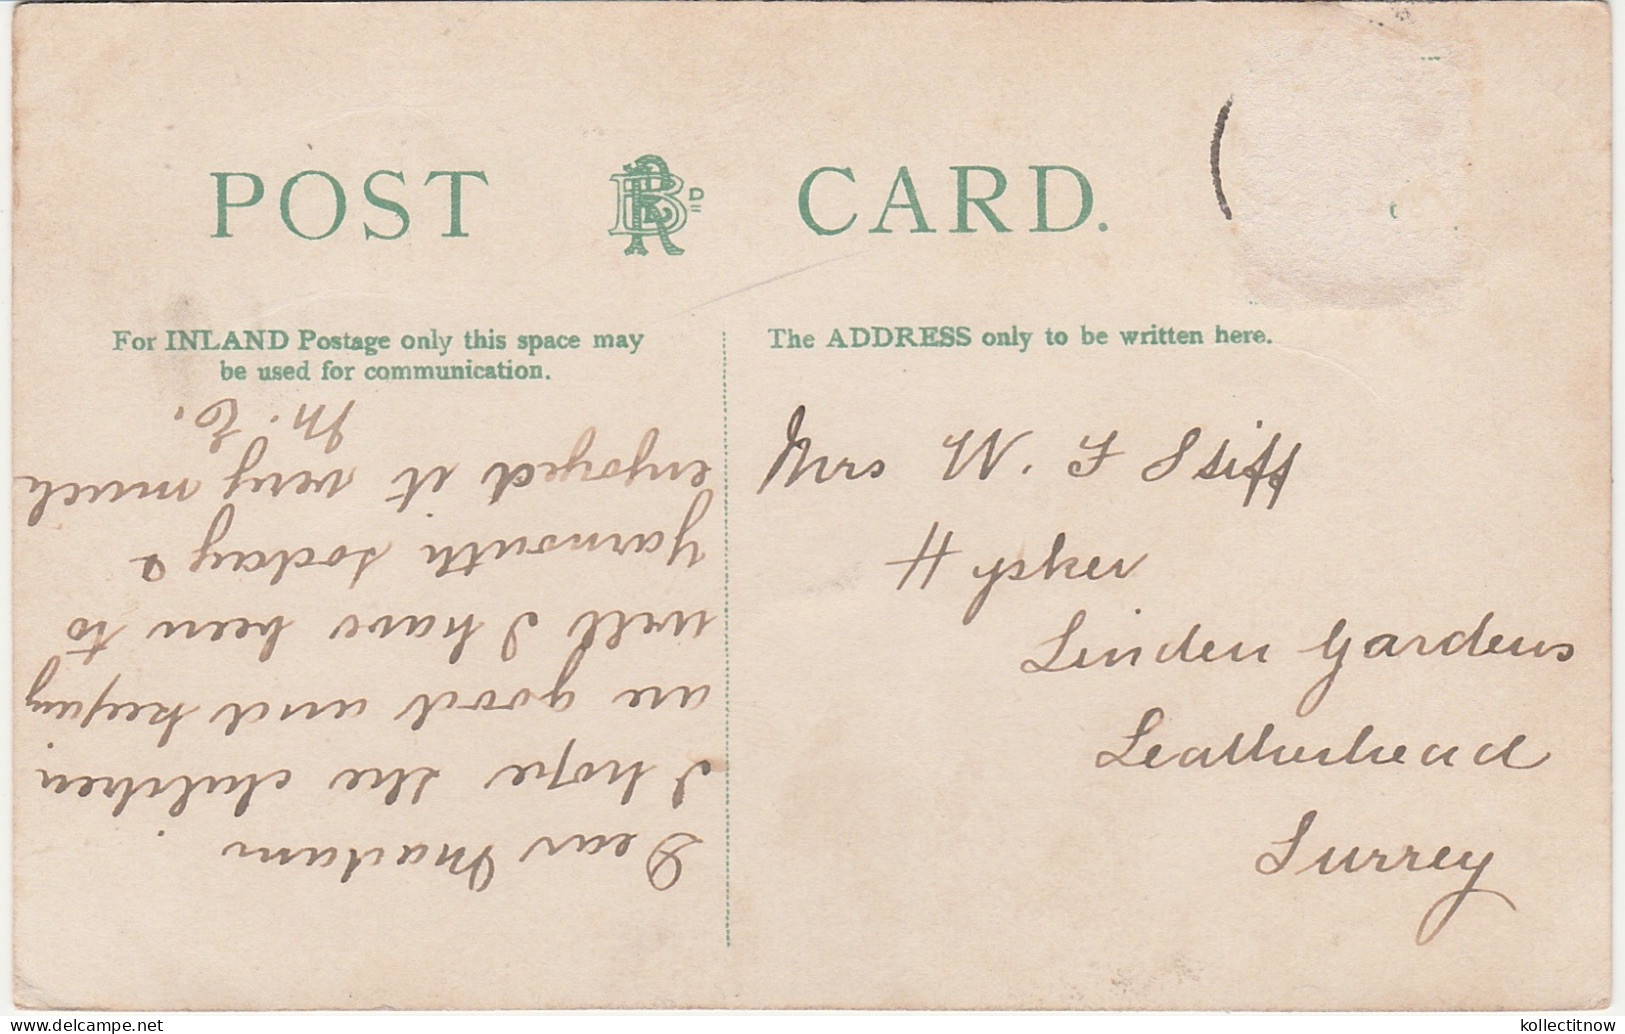 POST CARD.
For INLAND Postage only this space may
be used for communication.
The ADDRESS only to be written here.
Dear Madam
I hope the children
are good and keeping
well I have been to
Yarmouth today &
enjoyed it very much
M. E.
Mrs W. F Stiff
Hysker
Linden Gardens
Leatherhead
Surrey
https://www.delcampe.net
kollectitnow